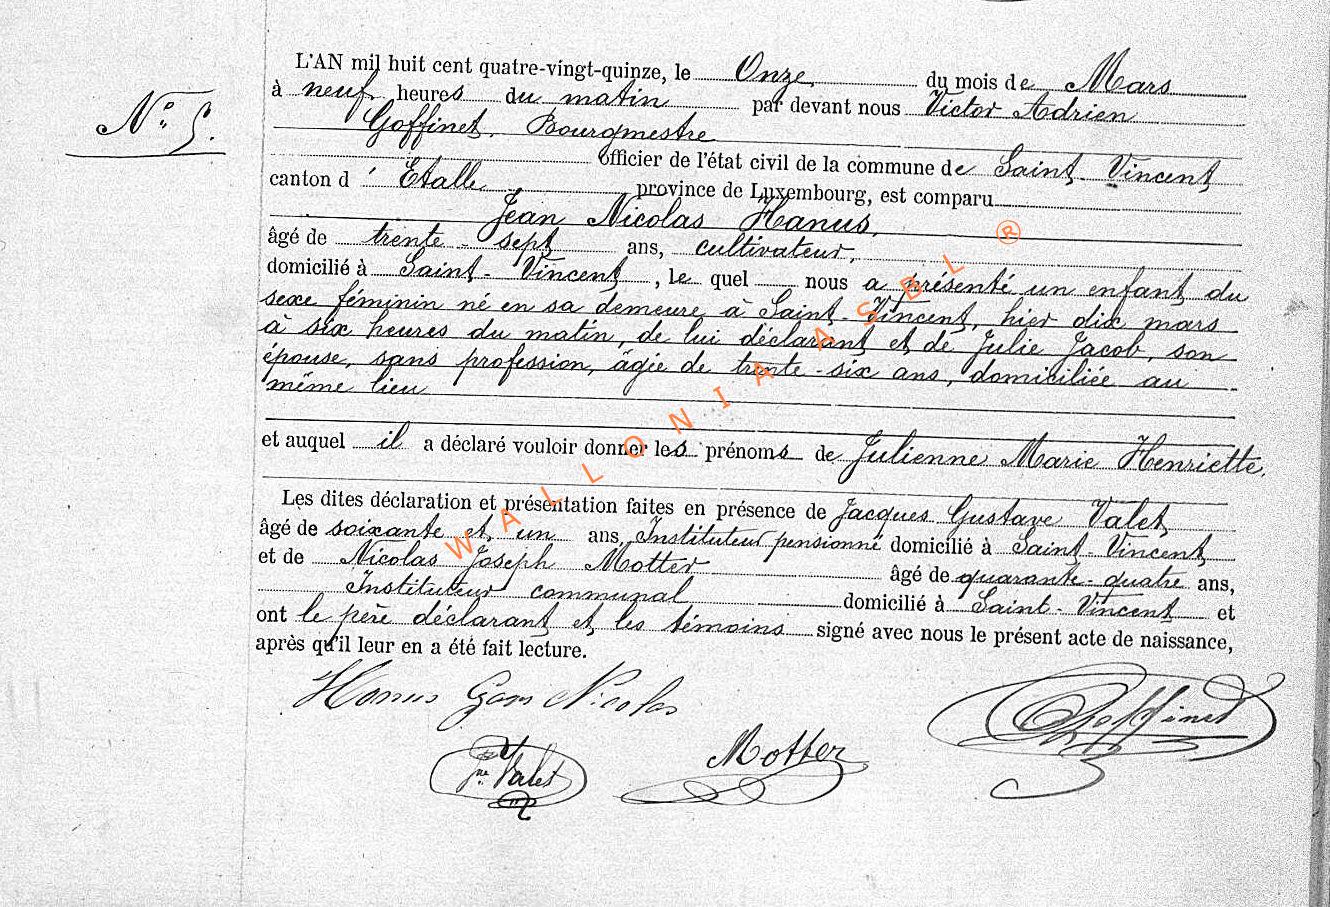 L'AN mil huit cent quatre-vingt-quinze, le Onze du mois de Mars
N° 5.
à neuf heures du matin par devant nous Victor Adrien
Goffinet, Bourgmestre
Officier de l'état civil de la commune de Saint-Vincent
canton d'Etalle province de Luxembourg, est comparu
Jean Nicolas Hanus,
âgé de trente-sept ans, cultivateur,
domicilié à Saint-Vincent, le quel nous a présenté un enfant du
sexe féminin né en sa demeure à Saint-Vincent, hier dix mars
à six heures du matin, de lui déclarant et de Julie Jacob, son
épouse, sans profession, âgée de trente-six ans, domiciliée au
même lieu
et auquel il a déclaré vouloir donner les prénoms de Julienne Marie Henriette,
Les dites déclaration et présentation faites en présence de Jacques Gustave Valet
âgé de soixante et un ans, Instituteur pensionné domicilié à Saint-Vincent
et de Nicolas Joseph Motter âgé de quarante-quatre ans,
Instituteur communal domicilié à Saint-Vincent et
ont le père déclarant et les témoins signé avec nous le présent acte de naissance,
après qu'il leur en a été fait lecture.
Hanus Jean Nicolas
Goffinet
Valet
Motter
WALLONIA ASBL ®